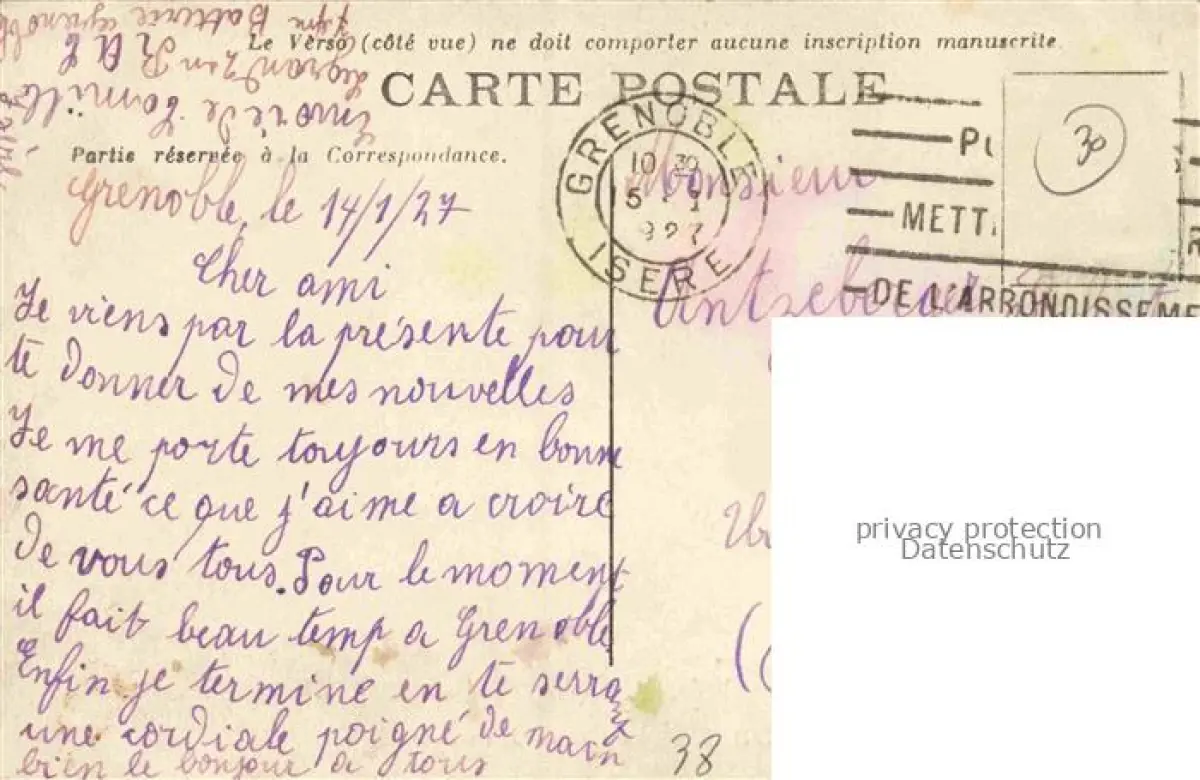 Le Verso (côté vue) ne doit comporter aucune inscription manuscrite
CARTE POSTALE
Partie réservée à la Correspondance.
Grenoble, le 14/1/27
Cher ami
Je viens par la présente pour
te donner de mes nouvelles
Je me porte toujours en bonne
santé ce que j'aime a croire
de vous tous. Pour le moment
il fait beau temp a Grenoble
Enfin je termine en te serrant
une cordiale poigné de main
bien le bonjour a tous
Envoie de Camille
Batterie Grenoble
GRENOBLE
10 30
15 - 1
927
ISERE
Monsieur
METT
DE L'ARRONDISSEME
30
privacy protection
Datenschutz
38